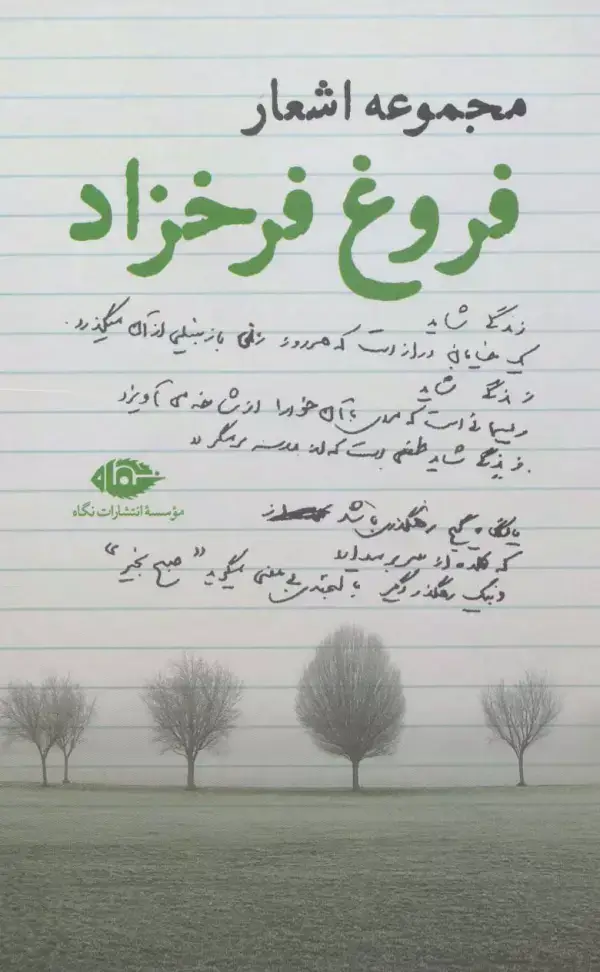 مجموعه اشعار
فروغ فرخزاد
زندگی شاید
یک خیابان دراز است که هر روز زنی با زنبیلی از آن میگذرد.
زندگی شاید
ریسمانی است که مردی با آن خود را از شاخه می آویزد
زندگی شاید طفلی است که از مدرسه بر میگردد
مؤسسهٔ انتشارات نگاه
یا نگاه گیج رهگذری باشد
که کلاه از سر بر میدارد
و بیک رهگذر دیگر با لبخندی بی معنی میگوید "صبح بخیر"